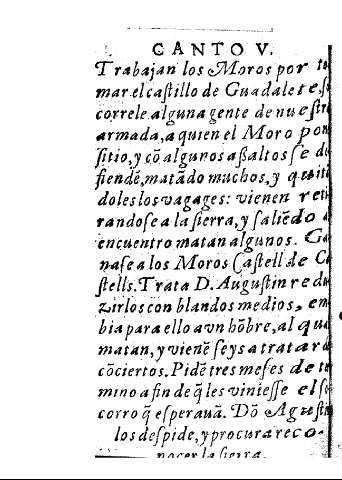 CANTO V.
Trabajan los Moros por to
mar el castillo de Guadaleste, so
correle alguna gente de nuestra
armada, a quien el Moro pon
sitio, y cõ algunos aßaltos se de
fiendẽ, matãdo muchos, y quitã
doles los vagages: vienen reti
randose a la sierra, y saliẽdo
encuentro matan algunos. Ga
nase a los Moros Castell de Ca
stells. Trata D. Augustin redu
zirlos con blandos medios, em
bia para ello a vn hõbre, al qual
matan, y vienẽ seys a tratar de
cõciertos. Pidẽ tres meses de ter
mino a fin de q̃ les viniesse el so
corro q̃ esperauã. Dõ Agustin
los despide, y procura reco-
nocer la sierra.